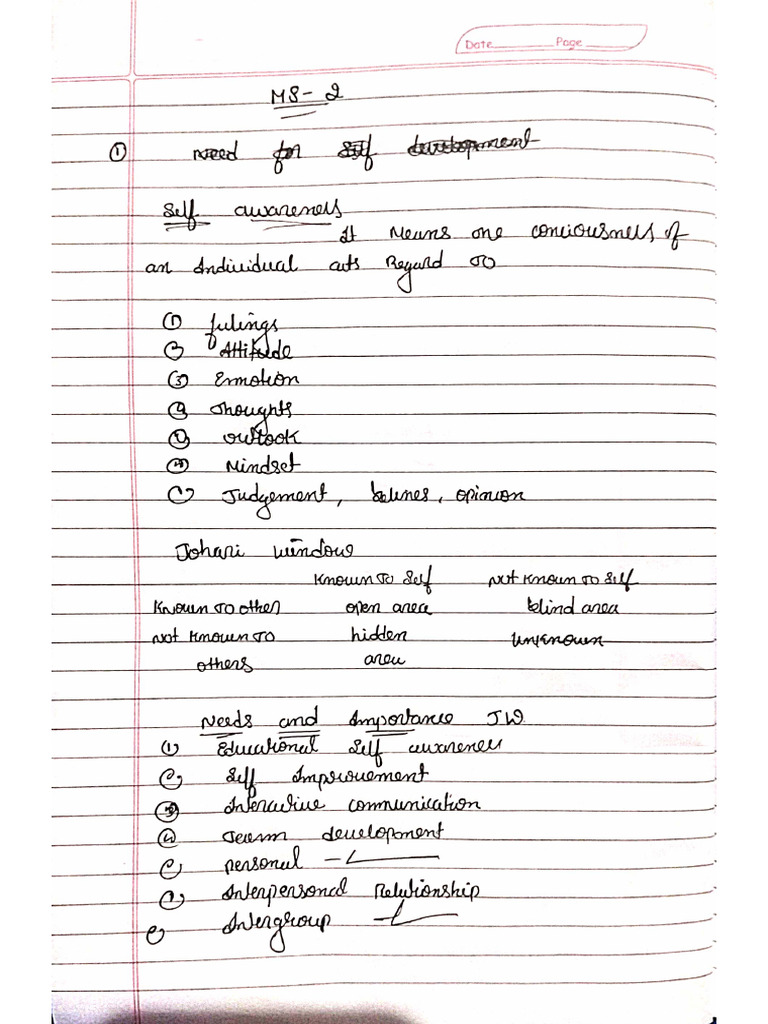 Date Page
MS-2
① Need for Self development
Self awareness
It Means one conciousness of
an Individual acts Regard to
① feelings
② Attitude
③ Emotion
④ Thoughts
outlook
Mindset
Judgement, , opinion
Johari window
Known to Self Not Known to Self
Known to other open area blind area
Not Known to hidden unknown
others area
Needs and Importance JW
① Educational Self awareness
Self Improvement
③ communication
④ Team development
personal -
Interpersonal Relationship
Intergroup -